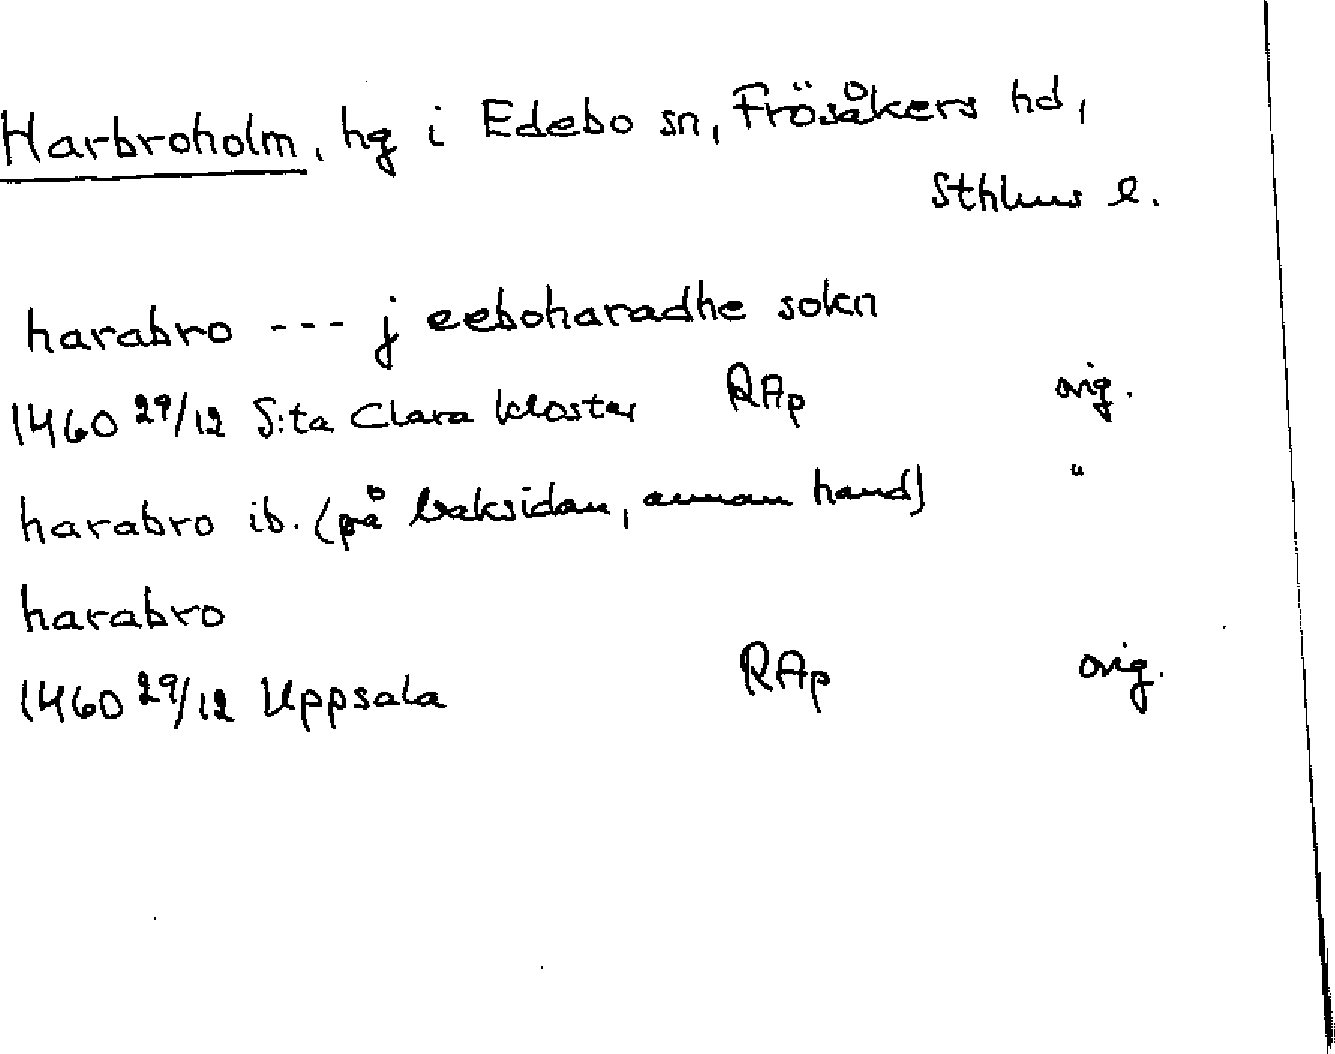 Harbroholm, hg i Edebo sn, Frösåkers hd,
Sthlms l.
harabro --- j eeboharadhe sokn
1460 29/12 S:ta Clara kloster RAp orig.
harabro ib. (på baksidan, annan hand) "
harabro
1460 29/12 Uppsala RAp orig.